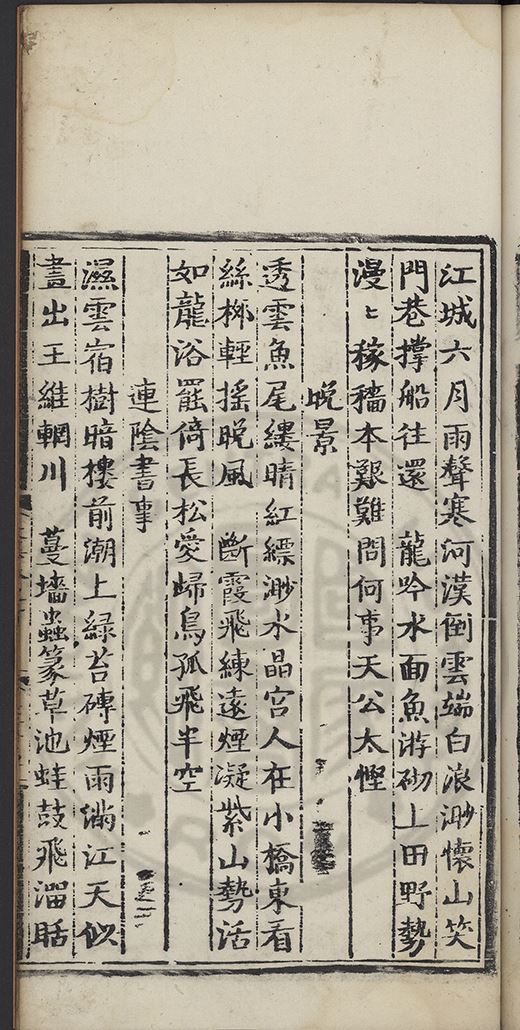 江城六月雨聲寒河漢倒雲端白浪渺懷山笑
門巷撑船往還　龍吟水面魚游砌上田野勢
漫〻稼穡本艱難問何事天公太慳
晚景
透雲魚尾縷晴紅縹渺水晶宫人在小橋東看
絲桞輕揺晚風　斷霞飛練遠煙凝紫山勢活
如龍浴罷倚長松愛歸鳥孤飛半空
連陰書事
濕雲宿樹暗樓前潮上緑苔磚煙雨滿江天似
畫出王維輞川　蔓墻蟲篆草池蛙鼓飛溜聒